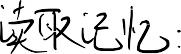 读取记忆: